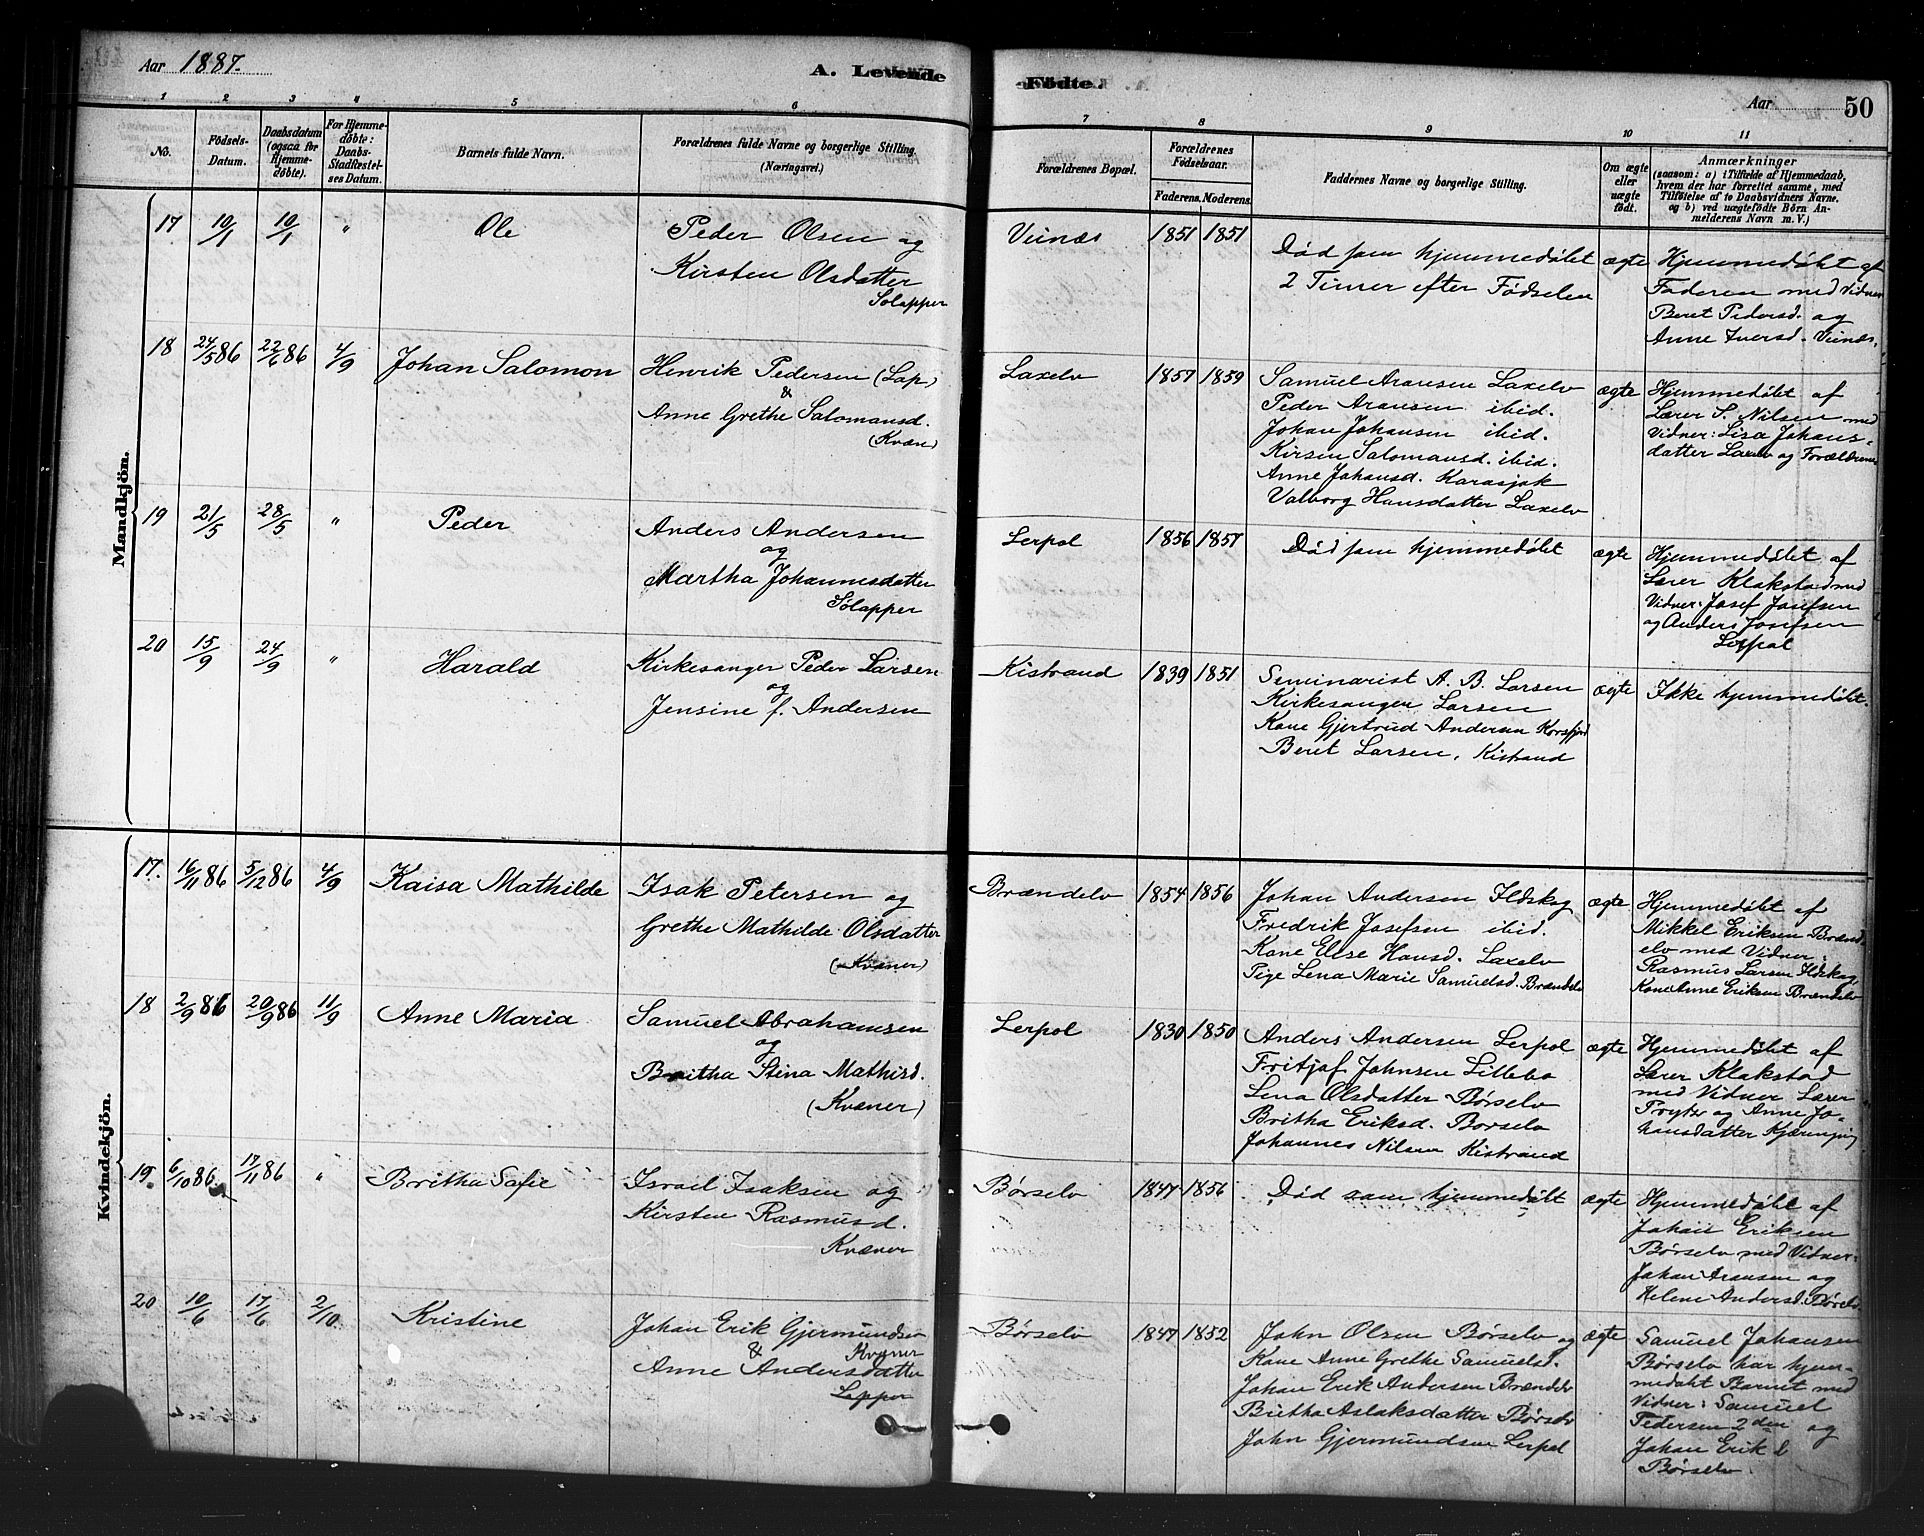 Aar 1887.
A. Levende
Fødte.
Aar
50
1 2 3 4 5 6 7 8 9 10 11
No.
Fødsels-
Datum.
Daabsdatum
(ogsaa for
Hjemme-
døbte).
For Hjemme-
døbte:
Daabs-
Stadfæstel-
ses Datum.
Barnets fulde Navn.
Forældrenes fulde Navne og borgerlige Stilling.
(Næringsvei.)
Forældrenes Bopæl.
Forældrenes
Fødselsaar.
Faderens. Moderens.
Faddernes Navne og borgerlige Stilling.
Om ægte
eller
uægte
født.
Anmærkninger
(saasom: a) i Tilfælde af Hjemmedaab,
hvem der har forrettet samme, med
Tilføielse af to Daabsvidners Navne.
og b) ved uægtefødte Børn An-
melderens Navn m. V.)
Mandkjön.
17 10/1 10/1 " Ole
Peder Olsen og
Kirsten Olsdatter
Sölapper
Veinæs 1851 1851
Død som hjemmedøbt
2 Timer efter Fødselen
ægte
Hjemmedøbt af
Faderen med Vidner
Beret Pedersd. og
Anne Iversd. Veinæs.
18 24/5 86 22/6 86 4/9 Johan Salomon
Henrik Pedersen (Lap)
&
Anne Grethe Salomansd.
(Kvæn)
Laxelv 1857 1859
Samuel Aransen Laxelv
Peder Aransen ibid.
Johan Johansen ibid.
Kirsen Salomansd. ibid.
Anne Johansd. Karasjok
Valborg Hansdatter Laxelv
ægte
Hjemmedøbt af
Lærer S. Nilsen med
Vidner: Lisa Johans-
datter Laxelv og Forældrene
19 21/5 28/5 " Peder
Anders Andersen
og
Martha Johannesdatter
Sölapper
Lerpol 1856 1857
Død som hjemmedøbt
ægte
Hjemmedøbt af
Lærer Klakstad med
Vidner: Josef Josefsen
og Anders Josefsen
Lerpol
20 15/9 24/9 " Harald
Kirkesanger Peder Larsen
og
Jensine f. Andersen
Kistrand 1839 1851
Seminarist A. B. Larsen
Kirkesanger Larsen
Kone Gjertrud Andersen Korsfjord
Beret Larsen, Kistrand
ægte
Ikke hjemmedøbt.
Kvindekjön.
17. 16/11 86 5/12 86 4/9 Kaisa Mathilde
Isak Petersen og
Grethe Mathilde Olsdatter
(Kvæner)
Brændelv 1854 1856
Johan Andersen Ildskog
Fredrik Josefsen ibid.
Kone Else Hansd. Laxelv
Pige Lena Marie Samuelsd. Brændelv
ægte
Hjemmedøbt af
Mikkel Eriksen Brænd-
elv med Vidner:
Rasmus Larsen Ildskog,
Kone Anne Eriksen Brændelv
18 2/9 86 20/9 86 11/9 Anne Maria
Samuel Abrahamsen
og
Britha Stina Mathisd.
(Kvæner)
Lerpol 1830 1850
Anders Andersen Lerpol
Fritjof Johnsen Lillebo
Lena Olsdatter Børselv
Britha Eriksd. Børselv
Johannes Nilsen Kistrand
ægte
Hjemmedøbt af
Lærer Klakstad
med Vidner Lærer
Prytz og Anne Jo-
hansdatter Kjæringvig
19. 6/10 86 17/11 86 " Britha Safie
Israel Isaksen og
Kirsten Rasmusd.
Kvæner
Børselv 1847 1856
Død som hjemmedøbt
ægte
Hjemmedøbt af
Johan Eriksen
Børselv med Vidner:
Johan Aransen og
Helene Andersd. Børselv
20 10/6 17/6 2/10 Kristine
Johan Erik Gjermundsen
& Kvæner
Anne Andersdatter
Lapper
Børselv 1847 1852
John Olsen Børselv og
Kone Anne Grethe Samuelsd.
Johan Erik Andersen Brændelv
Britha Aslaksdatter Børselv
John Gjermundsen Lerpol
ægte
Samuel Johansen
Børselv har hjem-
medøbt Barnet med
Vidner: Samuel
Pedersen 2den og
Johan Erik
Børselv.